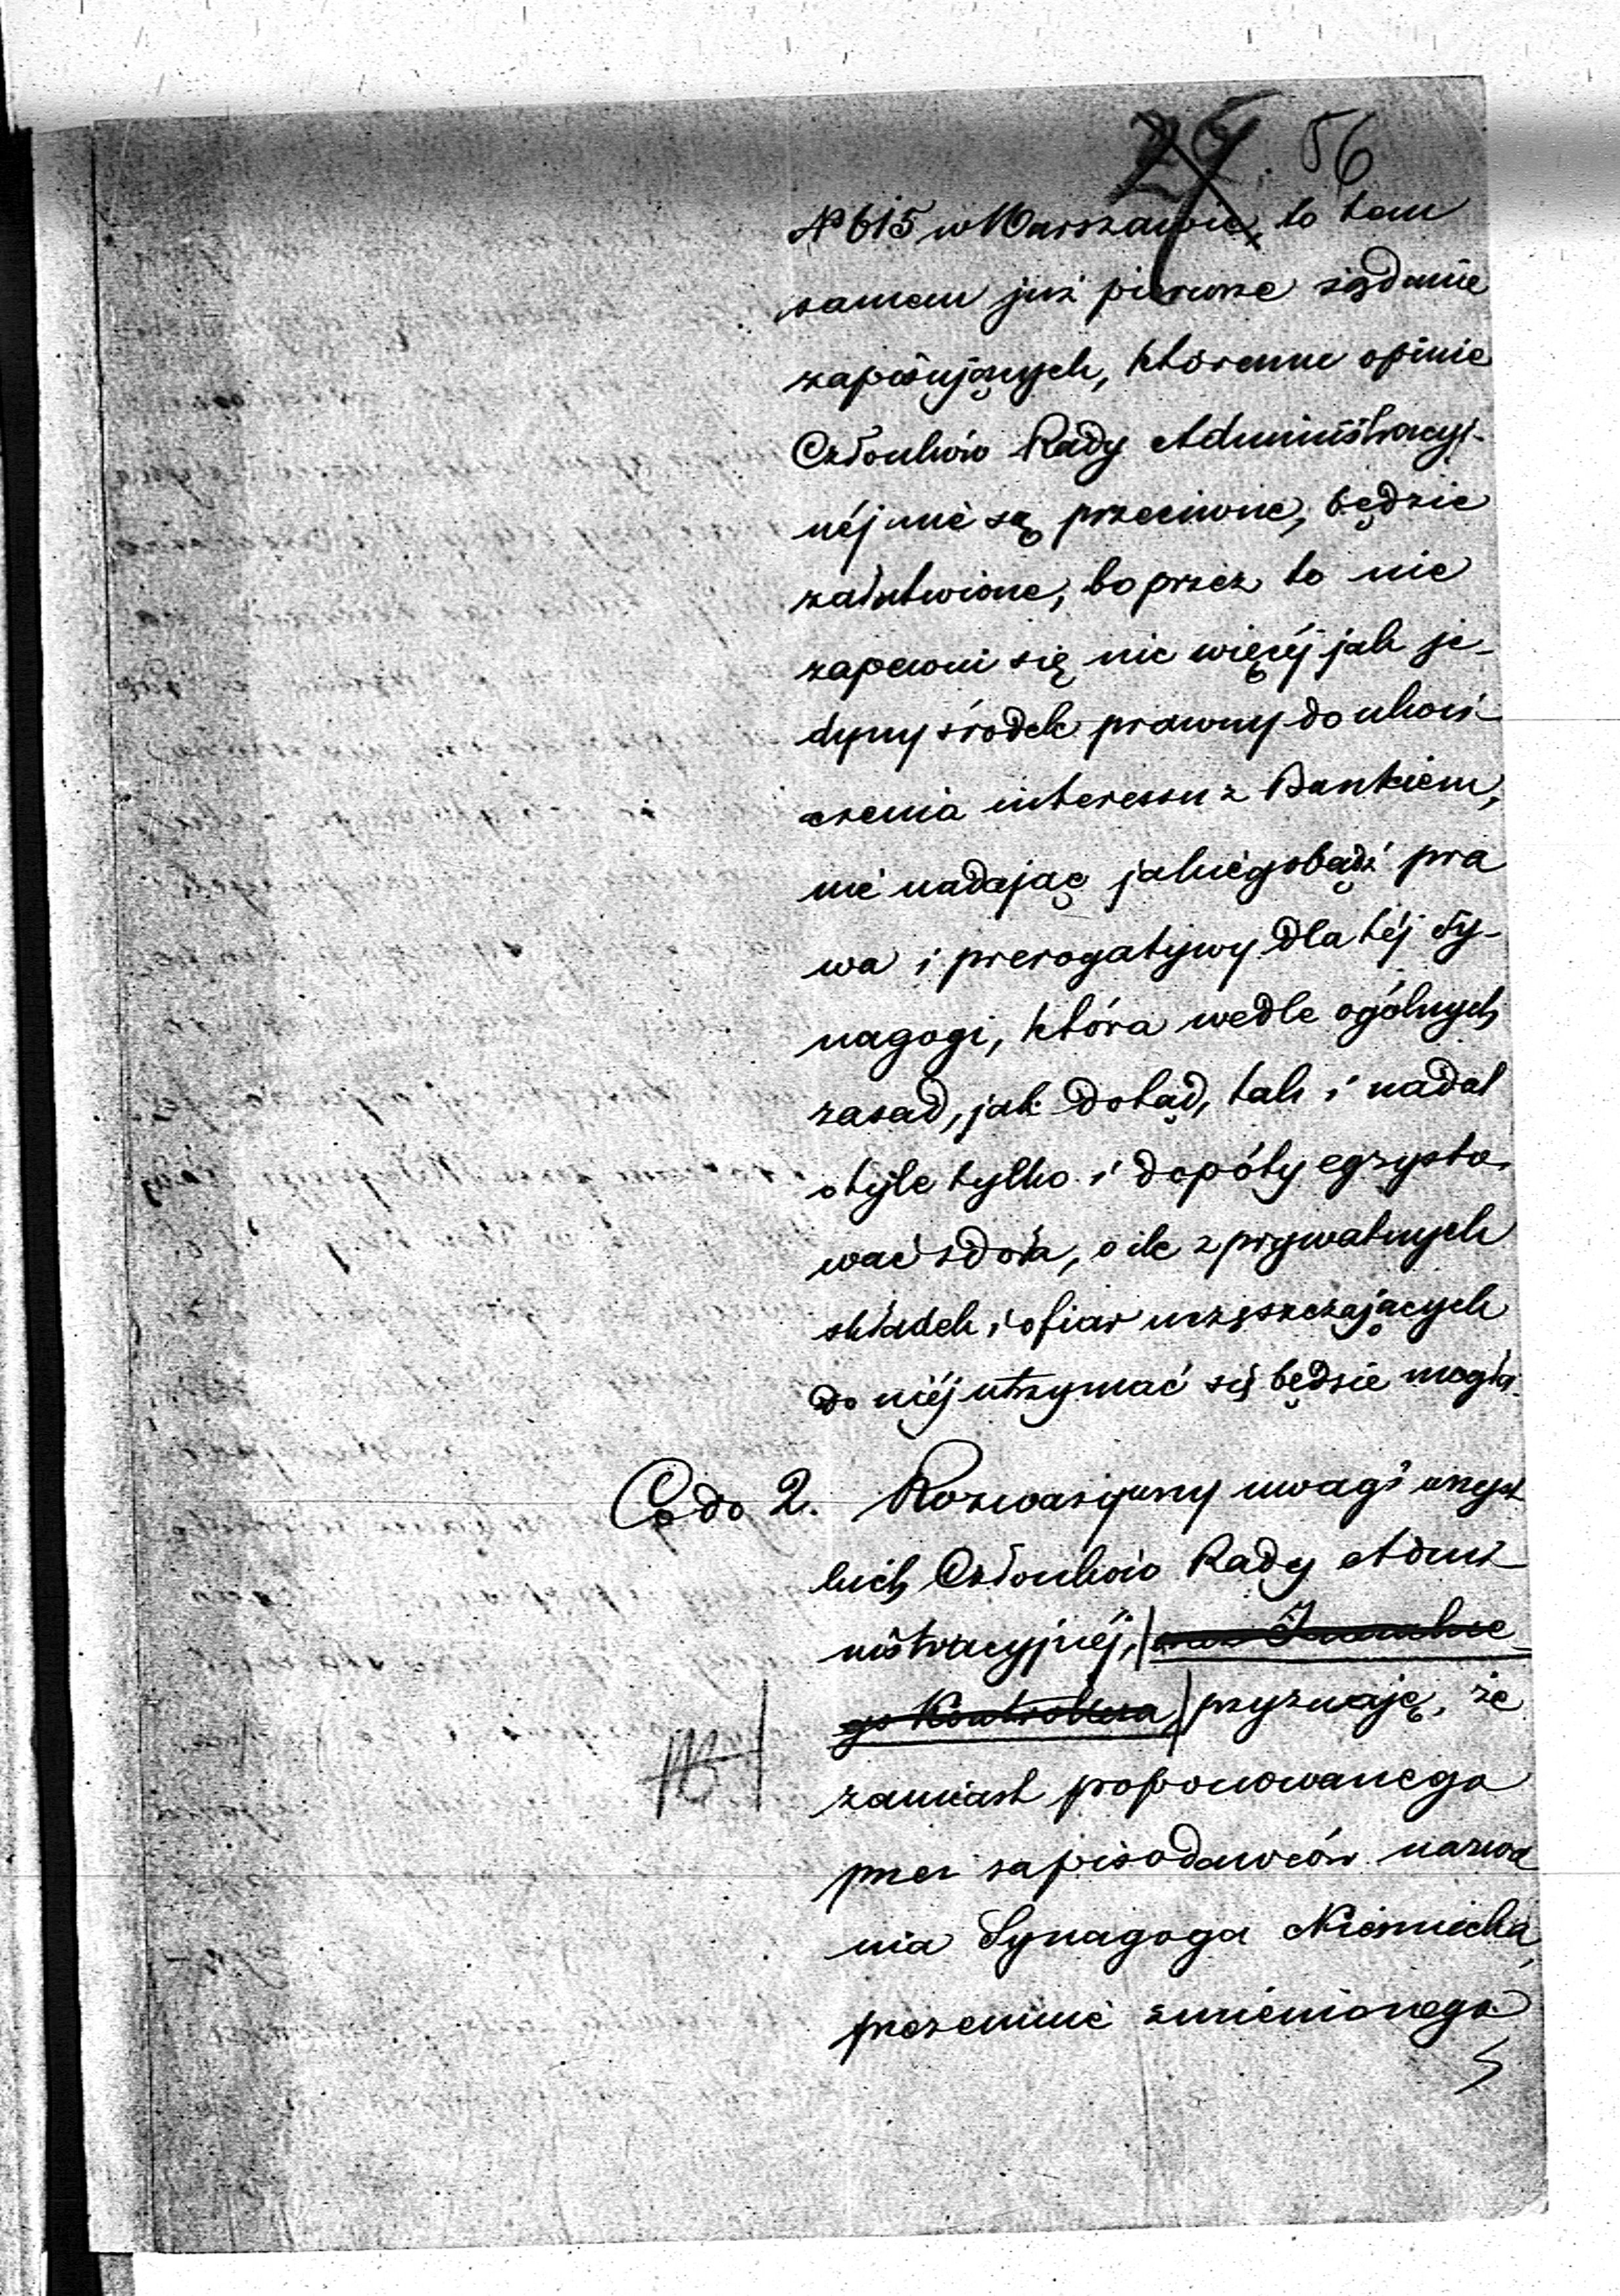 56
№ 615 w Warszawie, to tem
samem już pierwsze żądanie
zapisujących, któremu opinie
Członków Rady Administracyj-
néj nie są przeciwne, będzie
załatwione, bo przez to nie
zapewni się nic więcéj jak je-
dyny środek prawny do ukoń-
czenia interessu z Bankiem,
nie nadając jakiegobądź pra
wa i prerogatywy dla téj Sy-
nagogi, która wedle ogólnych
zasad, jak dotąd, tak i nadal
o tyle tylko i dopóty egzysto-
wać zdoła, o ile z prywatnych
składek i ofiar uczęszczających
do niéj utrzymać się będzie mogła.
Co do 2. Rozważywszy uwagi wszyst
kich Członków Rady Admi-
nistracyjnéj,
go Kontrollera, przyznaję, że
zamiast proponowanego
przez zapisodawców nazwa
nia Synagoga Niemiecka,
wzajemnie zmienionego